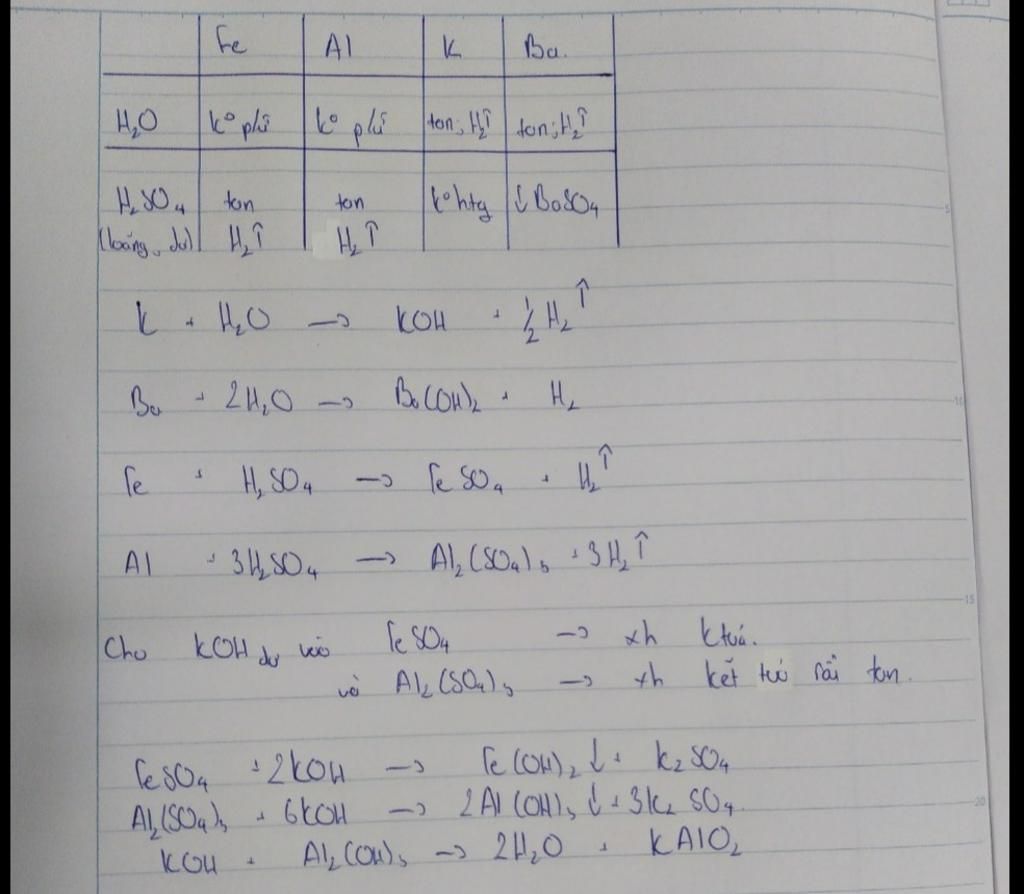 Fe Al K Ba.
H₂O k° pứ k° pứ tan; H₂↑ tan; H₂↑
H₂SO₄ tan tan k° htg ↓ BaSO₄
(loãng, dư) H₂↑ H₂↑
K + H₂O → KOH + ½ H₂↑
Ba + 2H₂O → Ba(OH)₂ + H₂
Fe + H₂SO₄ → FeSO₄ + H₂↑
Al + 3H₂SO₄ → Al₂(SO₄)₃ + 3H₂↑
Cho KOH dư vào FeSO₄ → xh ktuả.
và Al₂(SO₄)₃ → xh kết tủa rồi tan.
FeSO₄ + 2KOH → Fe(OH)₂ ↓ + K₂SO₄
Al₂(SO₄)₃ + 6KOH → 2Al(OH)₃ ↓ + 3K₂SO₄
KOH + Al₂(OH)₃ → 2H₂O + KAlO₂